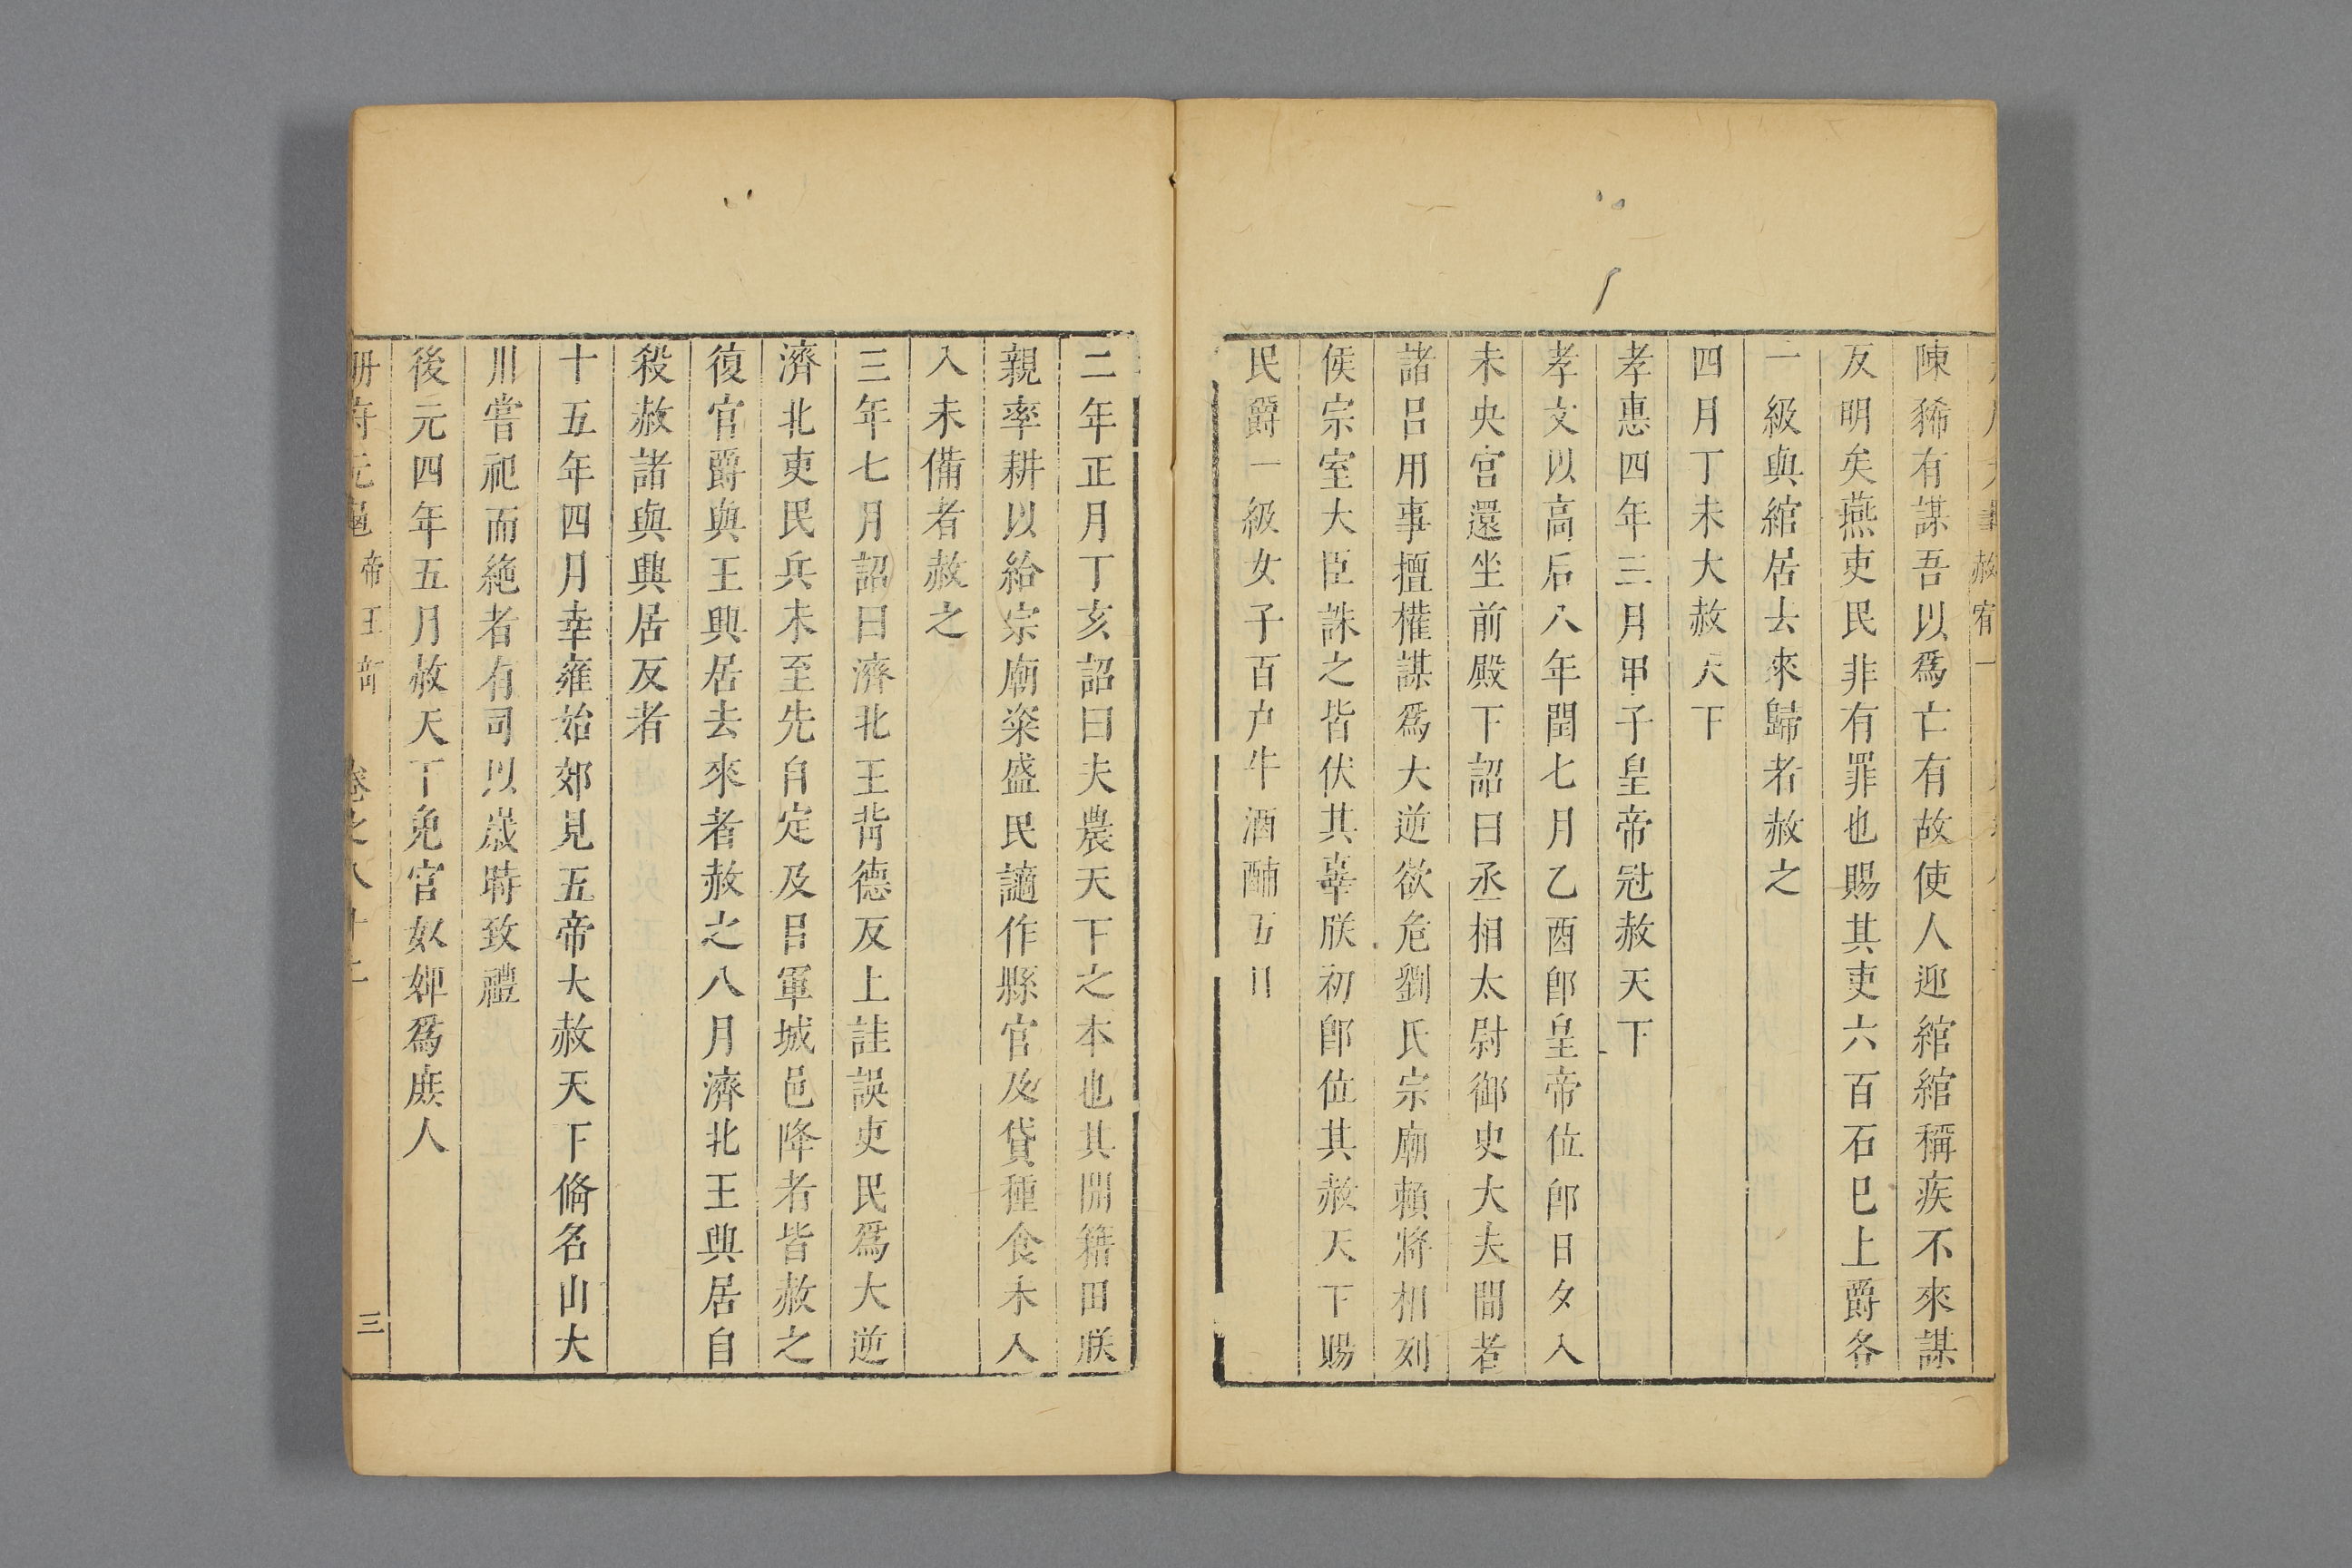 赦宥一
陳豨有謀吾以爲亡有故使人迎綰綰稱疾不來謀
反明矣燕吏民非有罪也賜其吏六百石巳上爵各
一級與綰居去來歸者赦之
四月丁未大赦天下
孝惠四年三月甲子皇帝冠赦天下
孝文以高后八年閏七月乙酉卽皇帝位卽日夕入
未央宮還坐前殿下詔曰丞相太尉御史大夫間者
諸呂用事擅權謀爲大逆欲危劉氏宗廟賴將相列
侯宗室大臣誅之皆伏其辜朕初卽位其赦天下賜
民爵一級女子百户牛酒酺五日
二年正月丁亥詔曰夫農天下之本也其開籍田朕
親率耕以給宗廟粢盛民謫作縣官及貸種食未入
入未備者赦之
三年七月詔曰濟北王背德反上詿誤吏民爲大逆
濟北吏民兵未至先自定及吕軍城邑降者皆赦之
復官爵與王興居去來者赦之八月濟北王興居自
殺赦諸與興居反者
十五年四月幸雍始郊見五帝大赦天下脩名山大
川嘗祀而絶者有司以歲時致禮
後元四年五月赦天下免官奴婢爲庶人
册府元龜 帝王部 卷之八十二 三